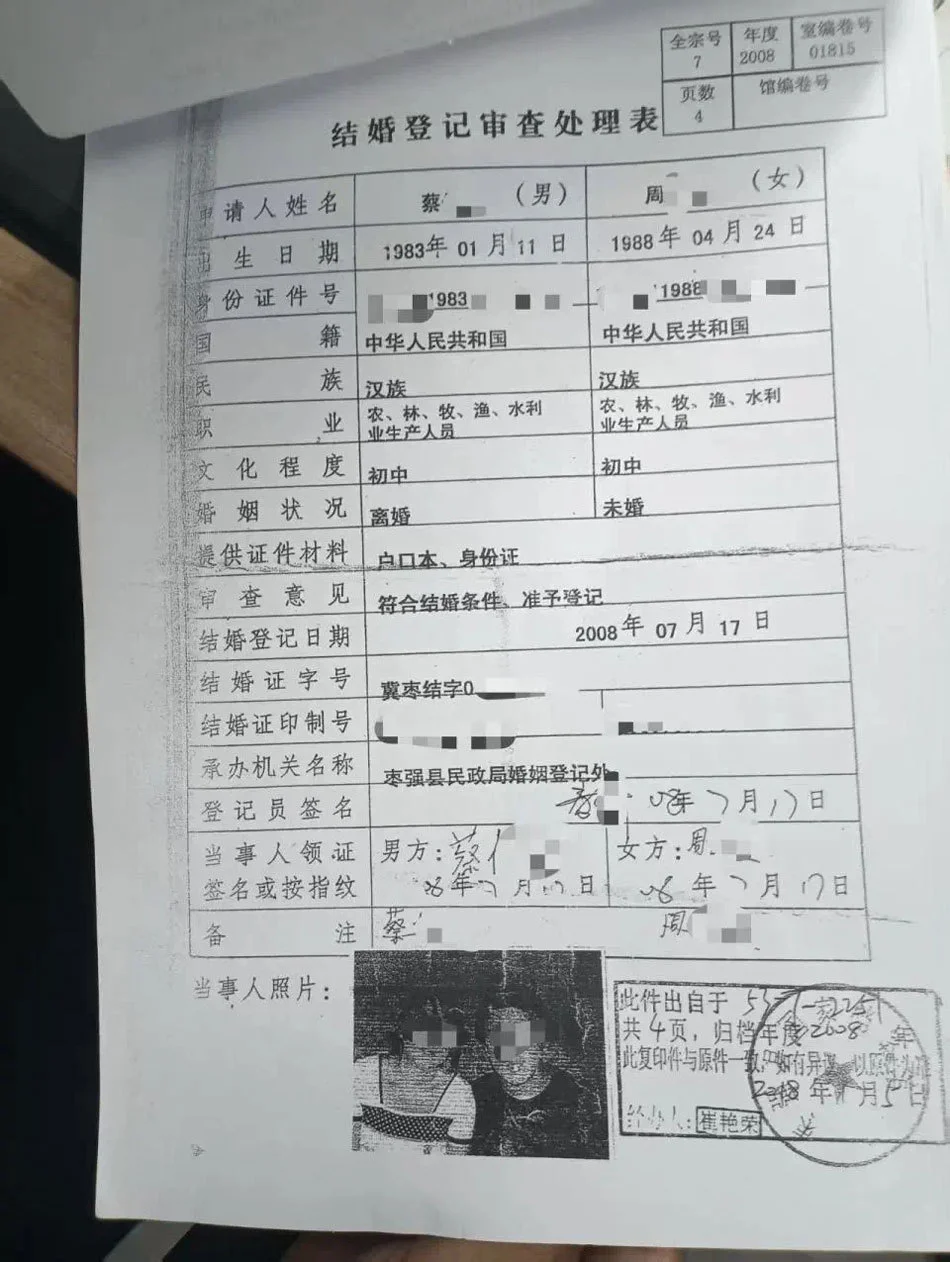 全宗号 年度 室编卷号
7 2008 01815
页数 馆编卷号
4
结婚登记审查处理表
申请人姓名 蔡 (男) 周 (女)
出生日期 1983年01月11日 1988年04月24日
身份证件号 1983 1988
国籍 中华人民共和国 中华人民共和国
民族 汉族 汉族
职业 农、林、牧、渔、水利 农、林、牧、渔、水利
业生产人员 业生产人员
文化程度 初中 初中
婚姻状况 离婚 未婚
提供证件材料 户口本、身份证
审查意见 符合结婚条件、准予登记
结婚登记日期 2008年07月17日
结婚证字号 冀枣结字0
结婚证印制号
承办机关名称 枣强县民政局婚姻登记处
登记员签名 08年7月17日
当事人领证 男方:蔡 女方:周
签名或按指纹 08年7月17日 08年7月17日
备注 蔡 周
当事人照片:
此件出自于
共4页,归档年度2008年
此复印件与原件一致,如有异议,以原件为准
2018年 月5日
经办人:崔艳荣